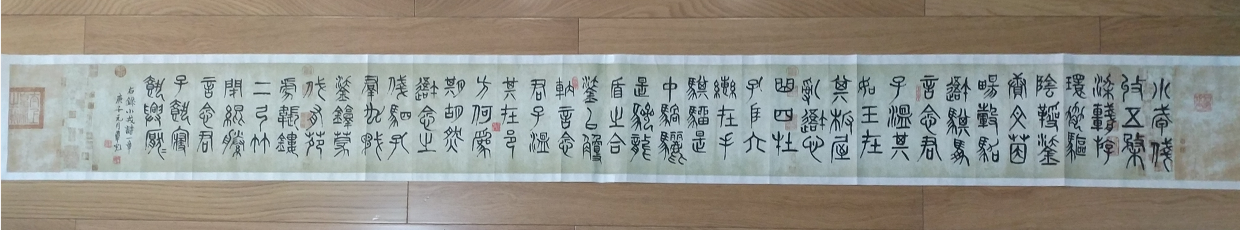 小戎俴
收五楘
梁輈游
環脅驅
陰靷鋈
續文茵
暢轂駕
我騏馵
言念君
子溫其
如玉在
其板屋
亂我心
曲四牡
孔阜六
轡在手
騏騮是
中騧驪
是驂龍
盾之合
鋈以觼
軜言念
君子溫
其在邑
方何為
期胡然
我念之
俴駟孔
群厹矛
鋈錞蒙
伐有苑
虎韔鏤
二弓竹
閉緄縢
言念君
子載寢
載興厭
右錄小戎詩一章
庚子元月